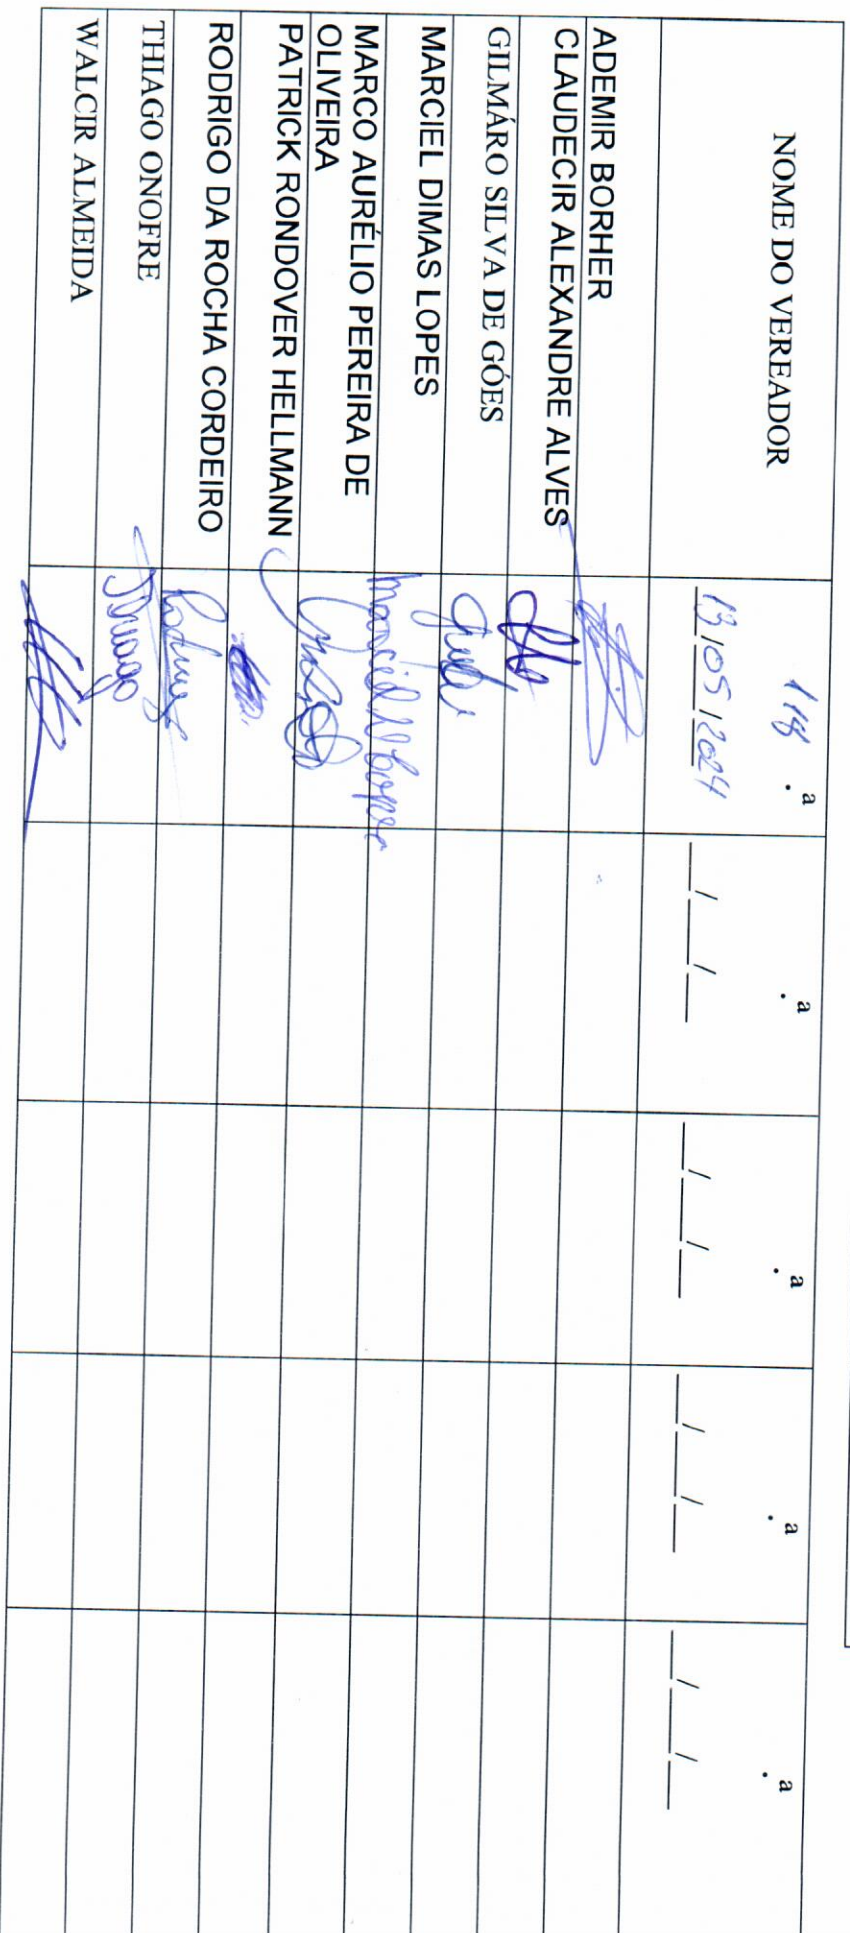 NOME DO VEREADOR
118 .a
13/05/2024
.a
__/__/__
.a
__/__/__
.a
__/__/__
.a
__/__/__
ADEMIR BORHER
CLAUDECIR ALEXANDRE ALVES
GILMÁRO SILVA DE GÓES
MARCIEL DIMAS LOPES
Marciel D Lopes
MARCO AURÉLIO PEREIRA DE
OLIVEIRA
PATRICK RONDOVER HELLMANN
RODRIGO DA ROCHA CORDEIRO
Rodrigo
THIAGO ONOFRE
Thiago
WALCIR ALMEIDA